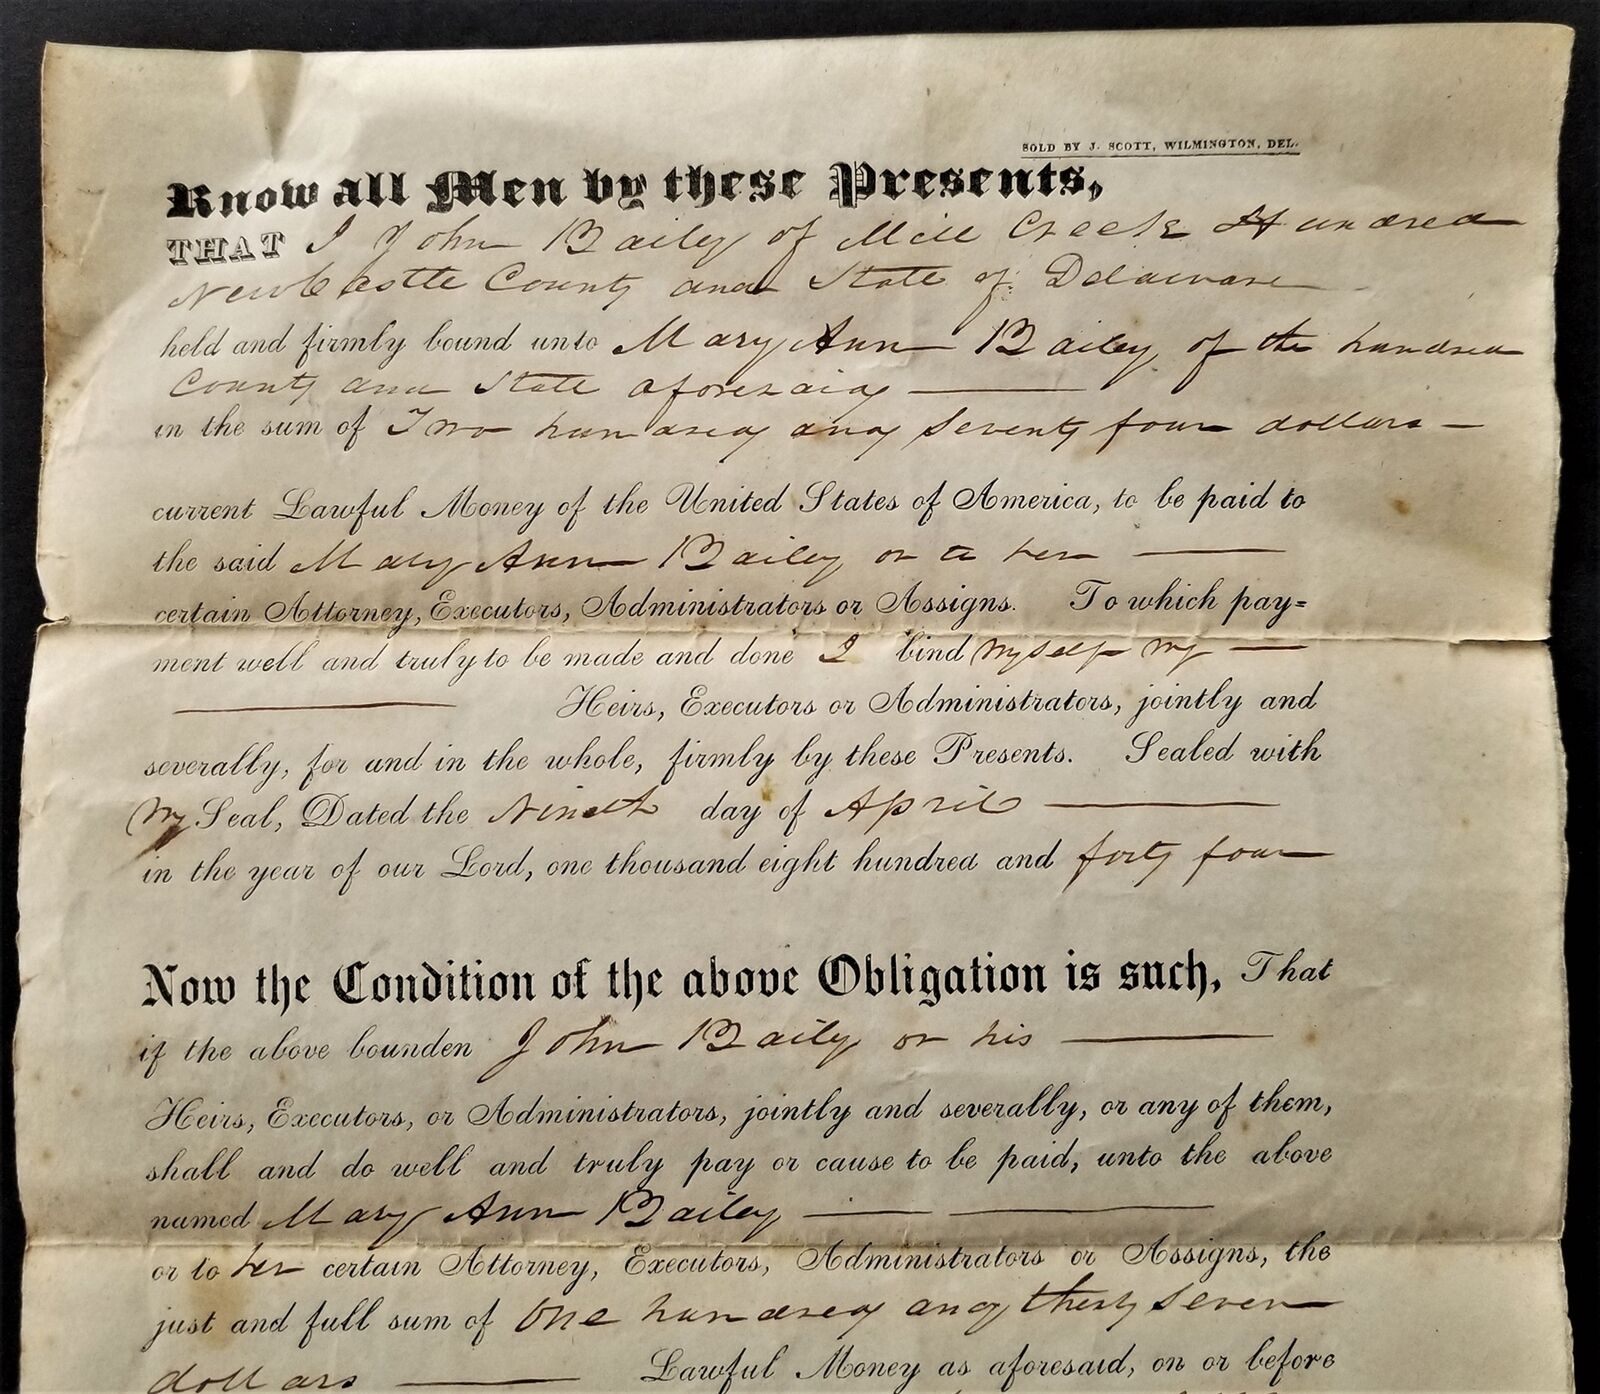 SOLD BY J. SCOTT, WILMINGTON, DEL.
Know all Men by these Presents,
THAT I John Baily of Mill Creek Hundred
New Castle County and State of Delaware
held and firmly bound unto Mary Ann Bailey of the hundred
County and State aforesaid
in the sum of Two hundred and Seventy four dollars —
current Lawful Money of the United States of America, to be paid to
the said Mary Ann Bailey or to her
certain Attorney, Executors, Administrators or Assigns. To which pay=
ment well and truly to be made and done I bind myself my
Heirs, Executors or Administrators, jointly and
severally, for and in the whole, firmly by these Presents. Sealed with
my Seal, Dated the Nineth day of April
in the year of our Lord, one thousand eight hundred and forty four
Now the Condition of the above Obligation is such, That
if the above bounden John Baily or his
Heirs, Executors, or Administrators, jointly and severally, or any of them,
shall and do well and truly pay or cause to be paid, unto the above
named Mary Ann Bailey
or to her certain Attorney, Executors, Administrators or Assigns, the
just and full sum of One hundred and thirty Seven
dollars Lawful Money as aforesaid, on or before